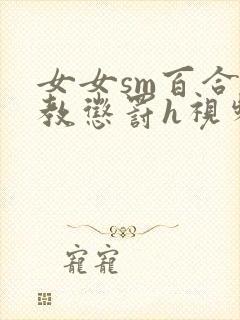 女女sm百合
教懲罰h視
寵寵